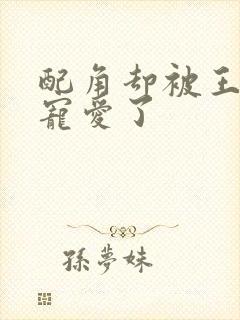 配角却被王
寵愛了
孫夢妹